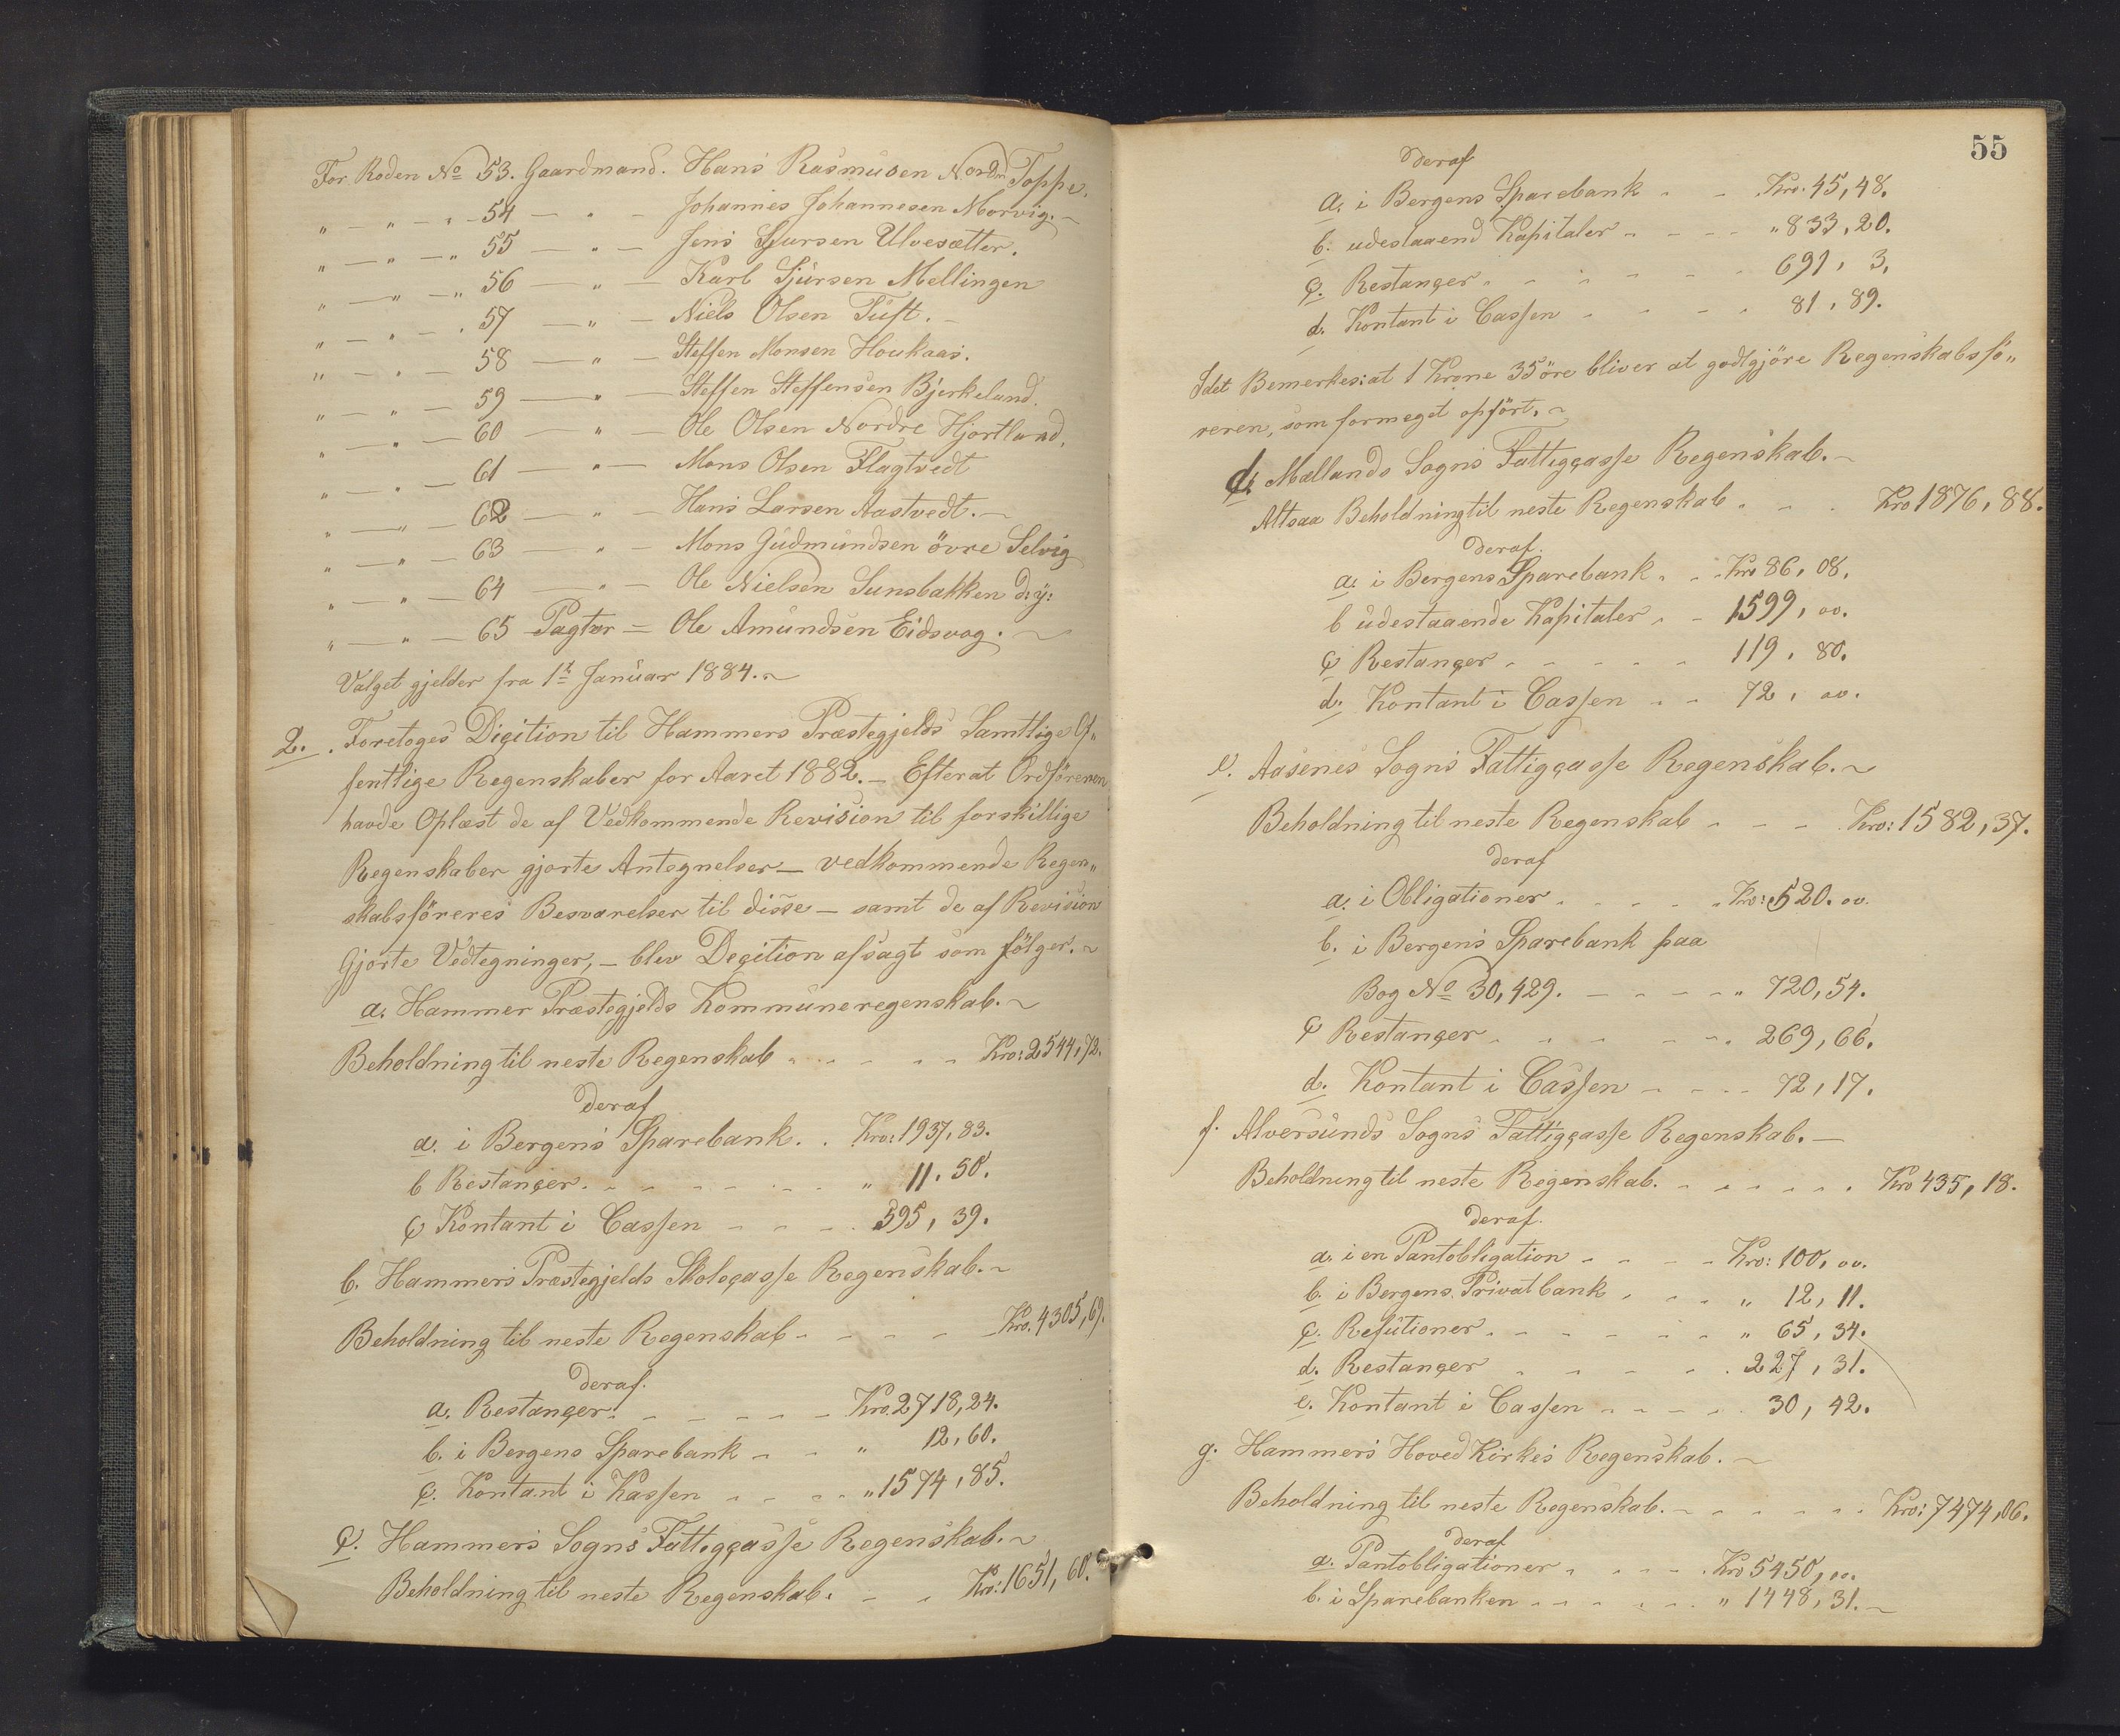 For Roden No 53. Gaardmand. Hans Rasmusen Nordre Toppe.
„ — „ — „ 54 — „ — Johannes Johannesen Morvig. —
„ — „ — „ 55 — „ — Jens Sjursen Ulvesætter.
„ — „ — „ 56 — „ — Karl Sjursen Mellingen
„ — „ — „ 57 — „ — Niels Olsen Tuft. —
„ — „ — 58 — „ — Steffen Monsen Houkaas.
„ — „ — 59 — „ — Steffen Steffensen Bjerkeland.
„ — „ — 60 — „ — Ole Olsen Nordre Hjortland.
„ — „ — 61 — „ — Mons Olsen Flagtvedt
„ — „ — 62 — „ — Hans Larsen Aastvedt. —
„ — „ — 63 — „ — Mons Gudmundsen övre Selvig
„ — „ — 64 — „ — Ole Nielsen Sunsbakken d:y:
„ — „ — 65 Pagter = Ole Amundsen Eidsvog. ~
Valget gjelder fra 1st Januar 1884. ~
2. Foretoges Diçition til Hammers Præstegjelds Samtlige Of„
fentlige Regenskaber for Aaret 1882. — Efterat Ordföreren
havde Oplæst de af Vedkommende Revision til forskillige
Regenskaber gjorte Antegnelser — vedkommende Regen„
skabsföreres Besvarelser til disse — samt de af Revision
Gjorte Vedtegninger, — blev Deçition afsagt som fölger. ~
a. Hammer Præstegjelds Kommuneregenskab. ~
Beholdning til neste Regenskab - - - - - Kro: 2544,72.
deraf
a. i Bergens Sparebank. . Kro: 1937,83.
b Restançer. - - - - - - „ 11. 50.
ç Kontant i Cassen - - - - 595, 39.
b. Hammers Præstegjelds Skoleçasse Regenskab. ~
Beholdning til neste Regenskab - - - - - Kro. 4305,69.
deraf.
a. Restançer. - - - - - Kro. 2718,24.
b. i Bergens Sparebank - - - „ 12,60.
ç. Kontant i Kassen - - - - „ 1574,85.
ç. Hammers Sogns Fattigçasse Regenskab. ~
Beholdning til neste Regenskab. - - Kro: 1651,60.
55
deraf
a. i Bergens Sparebank - - Kro. 45,48.
b. udestaaend Kapitaler - - - - „ 833,20.
ç. Restançer - - - - - - 691, 3,
d. Kontant i Cassen - - - - 81, 89.
Idet Bemerkes: at 1 Krone 35 öre bliver at godtgjöre Regenskabsfö„
reren, som formeget opfört. ~
d. Mællands Sogns Fattigçasse Regenskab. ~
Altsaa Beholdning til neste Regenskab - - - Kro 1876, 88.
deraf.
a. i Bergens Sparebank - - Kro 86, 08.
b udestaaende Kapitaler - - 1599, oo.
ç Restançer - - - - - 119, 80.
d. Kontant i Cassen - - 72, oo.
e. Aasenes Sogns Fattigçasse Regenskab. ~
Beholdning til neste Regenskab - - - Kro: 1582,37.
deraf
a. i Obligationer - - - - - Kro: 520. oo.
b. i Bergens Sparebank paa
Bog No 30,429. - - - - „ 720,54.
ç Restançer - - - - - - 269,66.
d. Kontant i Cassen - - - - 72,17.
f. Alversunds Sogns Fattigçasse Regenskab. —
Beholdning til neste Regenskab. - - - - - - Kro 435, 18.
deraf.
a. i en Pantobligation - - - - Kro: 100, oo.
b. i Bergens Privatbank - - - „ 12, 11.
ç. Refutioner. - - - - - - „ 65, 34.
d. Restançer - - - - - 227, 31.
e. Kontant i Cassen - - - - 30, 42.
g. Hammers Hoved Kirkes Regenskab. ~
Beholdning til neste Regenskab. - - - - - - Kro: 7474,06.
deraf
a. Pantobligationer - - - - Kro 5450, oo.
b. i Sparebanken - - - - - - „ 1448,31. ~